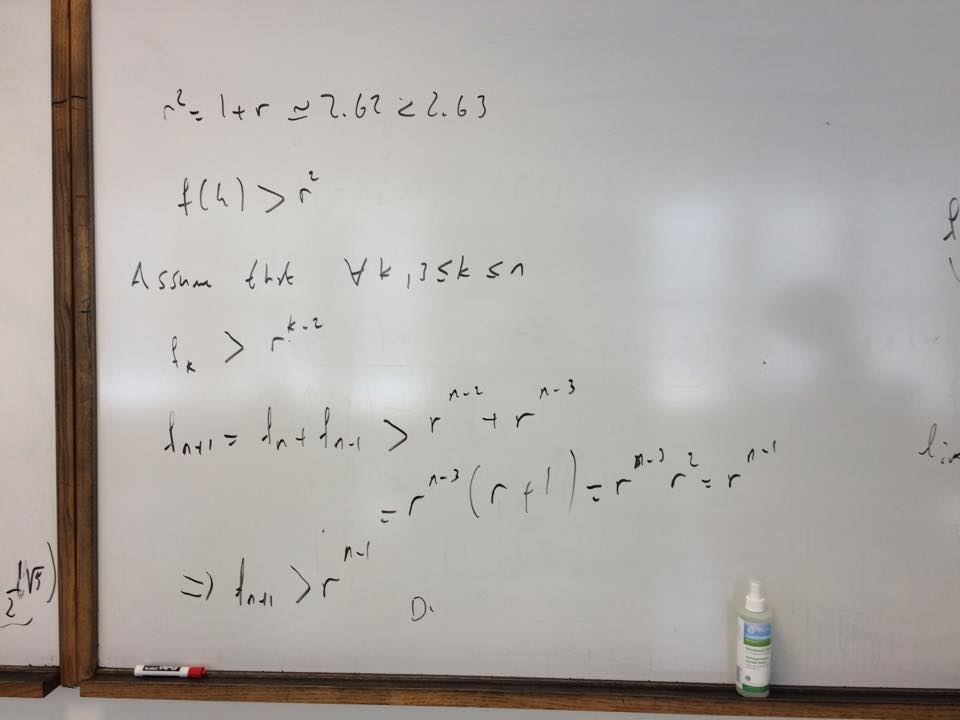 r² = 1 + r ≃ 2.62 < 2.63
f(4) > r²
Assume that ∀k, 3 ≤ k ≤ n
f_k > r^{k-2}
f_{n+1} = f_n + f_{n-1} > r^{n-2} + r^{n-3}
= r^{n-3} (r + 1) = r^{n-3} r² = r^{n-1}
⇒ f_{n+1} > r^{n-1}
lim
√5)
2